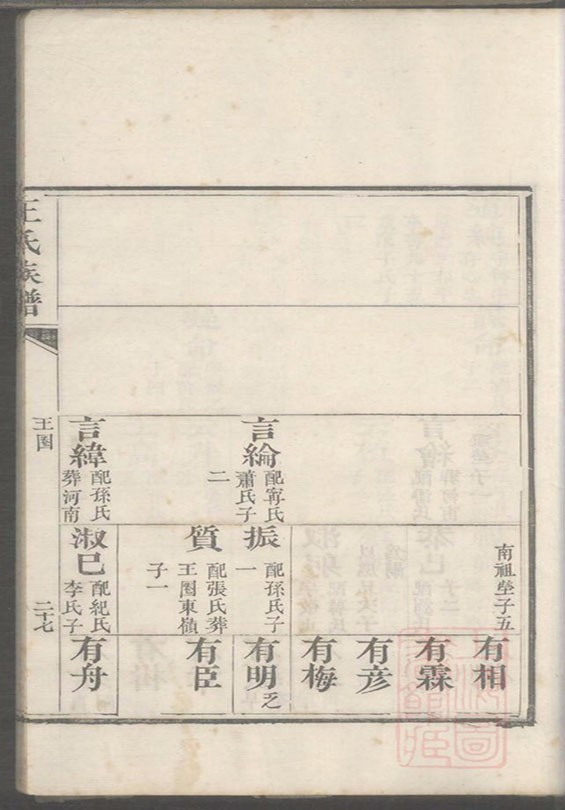 言綸
配甯氏
蕭氏子
二
言緯
配孫氏
葬河南
南祖塋子五
振
配孫氏子
一
質
配張氏葬
王圈東嶺
子一
淑巳
配紀氏
李氏子
有相
有霖
有彦
有梅
有明
乏
有臣
有舟
王氏族譜
王圈
二十七